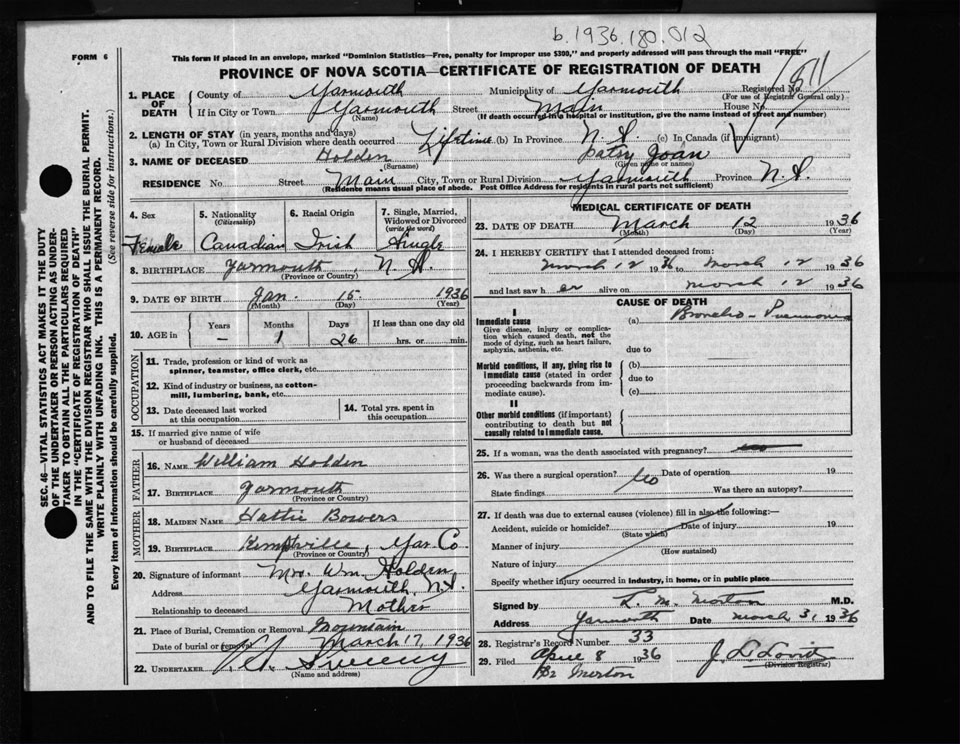 b.1936.180.012
FORM 6
This form if placed in an envelope, marked "Dominion Statistics—Free, penalty for improper use $300," and properly addressed will pass through the mail "FREE"
PROVINCE OF NOVA SCOTIA—CERTIFICATE OF REGISTRATION OF DEATH
SEC. 46—VITAL STATISTICS ACT MAKES IT THE DUTY
OF THE UNDERTAKER OR PERSON ACTING AS UNDER-
TAKER TO OBTAIN ALL THE PARTICULARS REQUIRED
IN THE "CERTIFICATE OF REGISTRATION OF DEATH"
AND TO FILE THE SAME WITH THE DIVISION REGISTRAR WHO SHALL ISSUE THE BURIAL PERMIT.
WRITE PLAINLY WITH UNFADING INK. THIS IS A PERMANENT RECORD.
Every item of Information should be carefully supplied. (See reverse side for instructions.)
1. PLACE OF DEATH County of Yarmouth Municipality of Yarmouth Registered No.
(For use of Registrar General only)
If in City or Town Yarmouth Street Main House No.
(Name) (If death occurred in a hospital or institution, give the name instead of street and number)
2. LENGTH OF STAY (in years, months and days)
(a) In City, Town or Rural Division where death occurred Lifetime (b) In Province N.S. (c) In Canada (if immigrant)
3. NAME OF DECEASED Holden Patsy Joan
(Surname) (Given name or names)
RESIDENCE No Street Main City, Town or Rural Division Yarmouth Province N.S.
(Residence means usual place of abode. Post Office Address for residents in rural parts not sufficient)
4. Sex 5. Nationality (Citizenship) 6. Racial Origin 7. Single, Married, Widowed or Divorced (write the word)
Female Canadian Irish Single
8. BIRTHPLACE Yarmouth, N.S.
(Province or Country)
9. DATE OF BIRTH Jan. 15 1936
(Month) (Day) (Year)
10. AGE in Years Months Days If less than one day old
— 1 26 hrs. or min.
OCCUPATION
11. Trade, profession or kind of work as
spinner, teamster, office clerk, etc.
12. Kind of industry or business, as cotton-
mill, lumbering, bank, etc.
13. Date deceased last worked
at this occupation
14. Total yrs. spent in
this occupation
15. If married give name of wife
or husband of deceased
FATHER
16. NAME William Holden
17. BIRTHPLACE Yarmouth
(Province or Country)
MOTHER
18. MAIDEN NAME Hattie Bowers
19. BIRTHPLACE Kemptville, Yar. Co
(Province or Country)
20. Signature of informant Mrs. Wm. Holden
Address Yarmouth, N.S.
Relationship to deceased Mother
21. Place of Burial, Cremation or Removal Mountain
Date of burial or removal March 17, 1936
22. UNDERTAKER Sweeny
(Name and address)
MEDICAL CERTIFICATE OF DEATH
23. DATE OF DEATH March 12 1936
(Month) (Day) (Year)
24. I HEREBY CERTIFY that I attended deceased from:
March 12 1936 to March 12 1936
and last saw h er alive on March 12 1936
CAUSE OF DEATH
I
Immediate cause (a) Broncho-Pneumonia
Give disease, injury or complica-
tion which caused death, not the
mode of dying, such as heart failure,
asphyxia, asthenia, etc.
due to
Morbid conditions, if any, giving rise to (b)
immediate cause (stated in order
proceeding backwards from im-
mediate cause).
due to
(c)
II
Other morbid conditions (if important)
contributing to death but not
causally related to immediate cause.
25. If a woman, was the death associated with pregnancy?
26. Was there a surgical operation? No Date of operation 19
State findings Was there an autopsy?
27. If death was due to external causes (violence) fill in also the following:—
Accident, suicide or homicide? Date of injury 19
(State which)
Manner of injury
(How sustained)
Nature of injury
Specify whether injury occurred in industry, in home, or in public place
Signed by L. M. Morton M.D.
Address Yarmouth Date March 31, 1936
28. Registrar's Record Number 33
29. Filed April 8 1936
(Division Registrar)
Morton